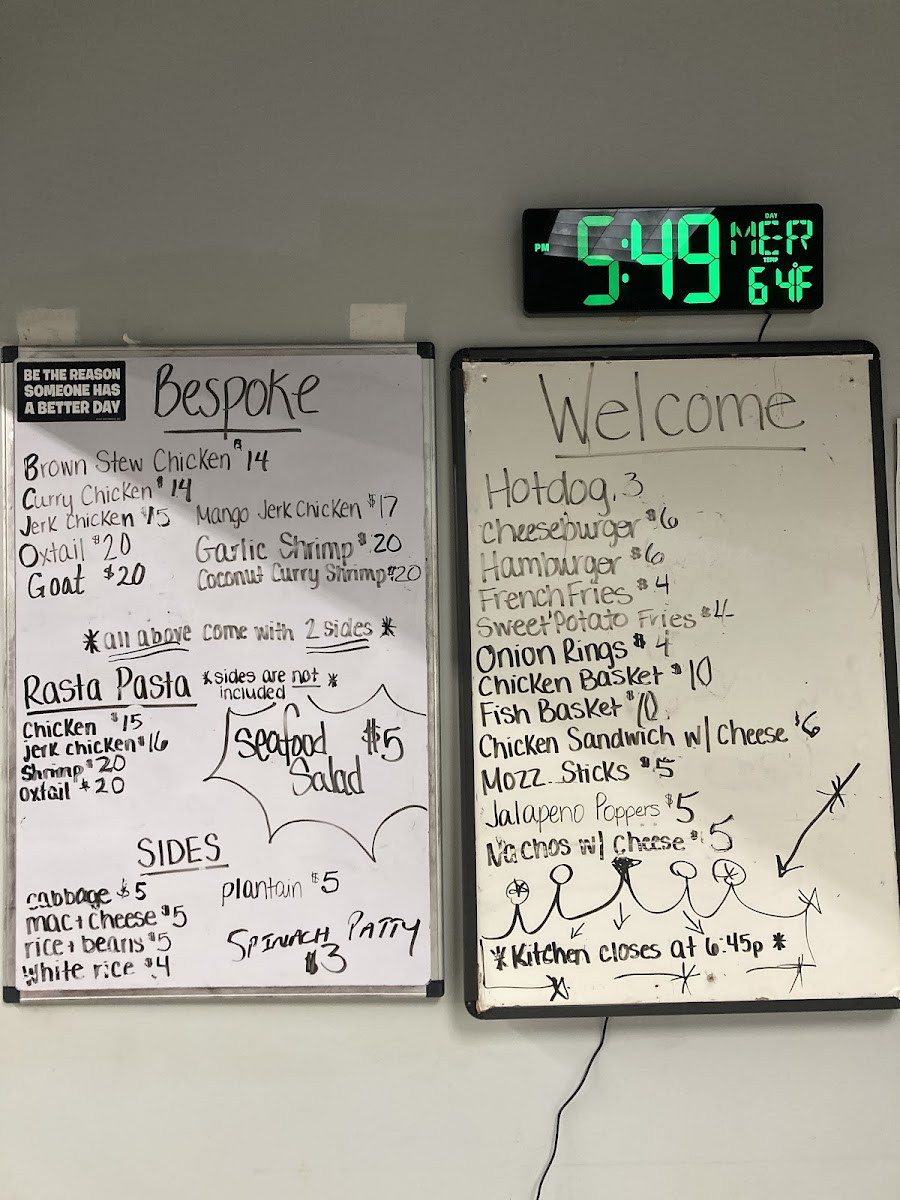 PM
5:49
DAY
MER
TEMP
64°F
BE THE REASON
SOMEONE HAS
A BETTER DAY
Bespoke
Brown Stew Chicken $14
Curry Chicken $14
Jerk Chicken $15
Oxtail $20
Goat $20
Mango Jerk Chicken $17
Garlic Shrimp $20
Coconut Curry Shrimp $20
*all above come with 2 sides*
Rasta Pasta
*sides are not included*
Chicken $15
Jerk chicken $16
Shrimp $20
oxtail $20
Seafood Salad $5
SIDES
cabbage $5
mac + cheese $5
rice + beans $5
White rice $4
plantain $5
SPINACH PATTY
$3
Welcome
Hotdog. 3
Cheeseburger $6
Hamburger $6
French Fries $4
Sweet Potato Fries $4
Onion Rings $4
Chicken Basket $10
Fish Basket $10
Chicken Sandwich w/ Cheese $6
Mozz. Sticks $5
Jalapeno Poppers $5
Nachos w/ Cheese $5
*Kitchen closes at 6:45p*